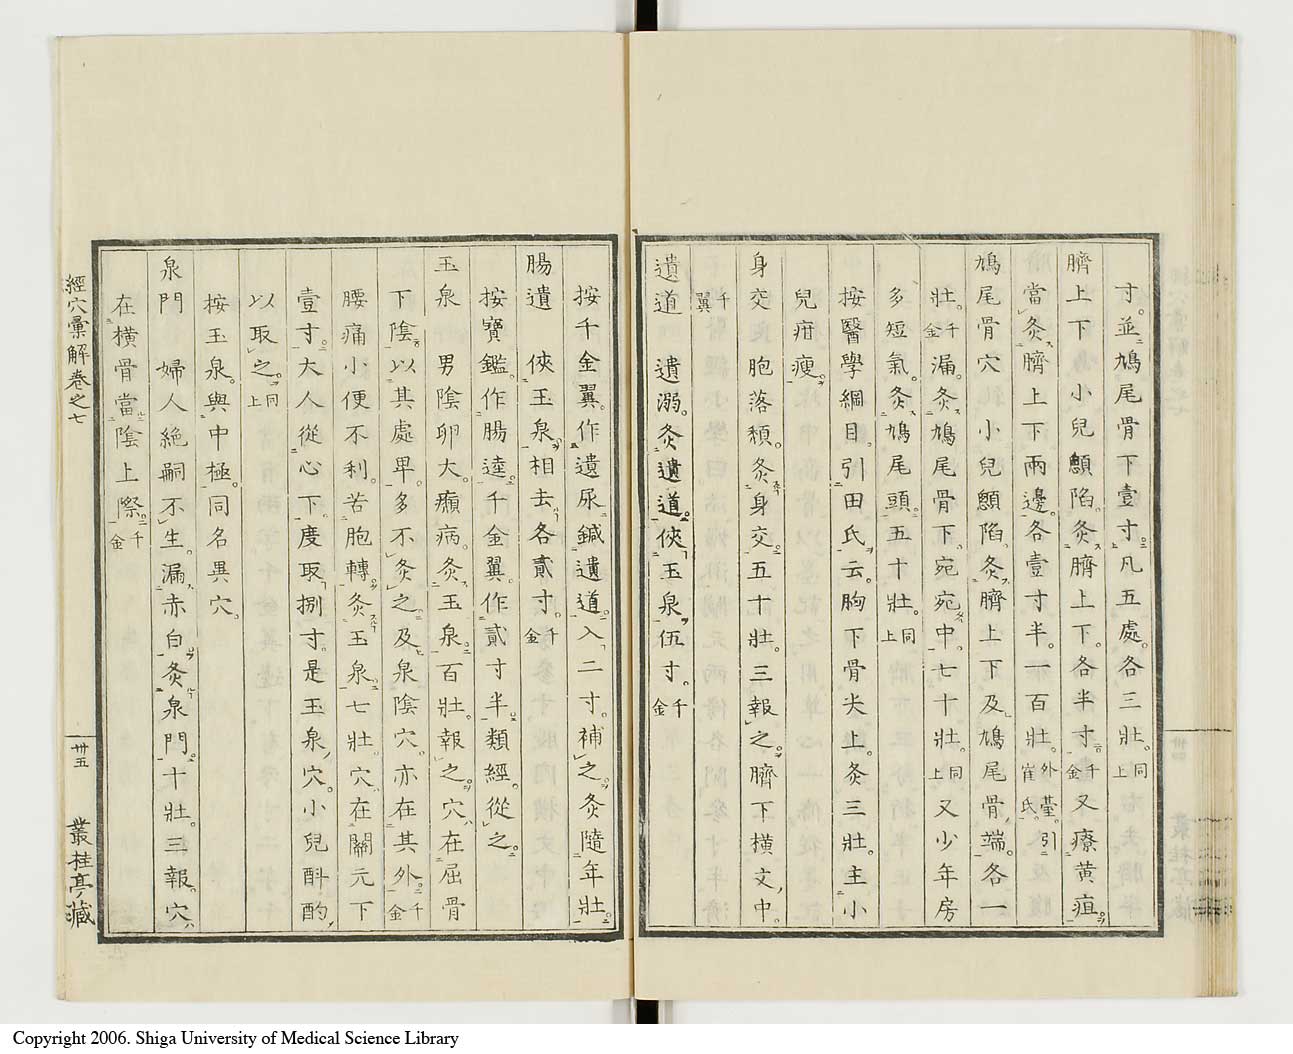 寸。並鳩尾骨下壹寸。凡五處。各三壯。同上
臍上下　小兒顖陷。灸臍上下。各半寸。千金又療黃疸。
當灸臍上下兩邊。各壹寸半。一百壯。外臺引崔氏
鳩尾骨穴　小兒顖陷。灸臍上下及鳩尾骨端。各一
壯。千金漏。灸鳩尾骨下。宛宛中。七十壯。同上又少年房
多短氣。灸鳩尾頭。五十壯。同上
按醫學綱目。引田氏云。胸下骨尖上。灸三壯。主小
兒疳瘦。
身交　胞落頹。灸身交。五十壯。三報之。臍下橫文中。
千翼
遺道　遺溺。灸遺道。俠玉泉。伍寸。千金
按千金翼。作遺尿。鍼遺道。入二寸。補之。灸隨年壯。
腸遺　俠玉泉。相去各貳寸。千金
按寶鑑。作腸遶。千金翼。作貳寸半。類經。從之。
玉泉　男陰卵大。癩病。灸玉泉。百壯。報之。穴在屈骨
下陰。以其處卑。多不灸之。及泉陰穴。亦在其外。千金
腰痛小便不利。苦胞轉。灸玉泉七壯。穴在關元下
壹寸。大人從心下。度取捌寸。是玉泉穴。小兒斟酌。
以取之。同上
按玉泉。與中極。同名異穴。
泉門　婦人絕嗣不生。漏赤白。灸泉門。十壯。三報。穴
在橫骨當陰上際。千金
經穴彙解卷之七
卅五
叢桂亭藏
Copyright 2006. Shiga University of Medical Science Library